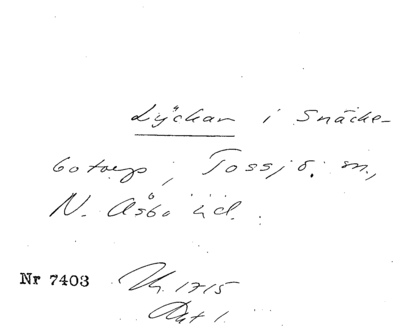 Lyckan i Snäcke-
botorp, Tossjö sn.,
N. Åsbo hd.
Nr 7403 Kr. 1715
Akt 1.